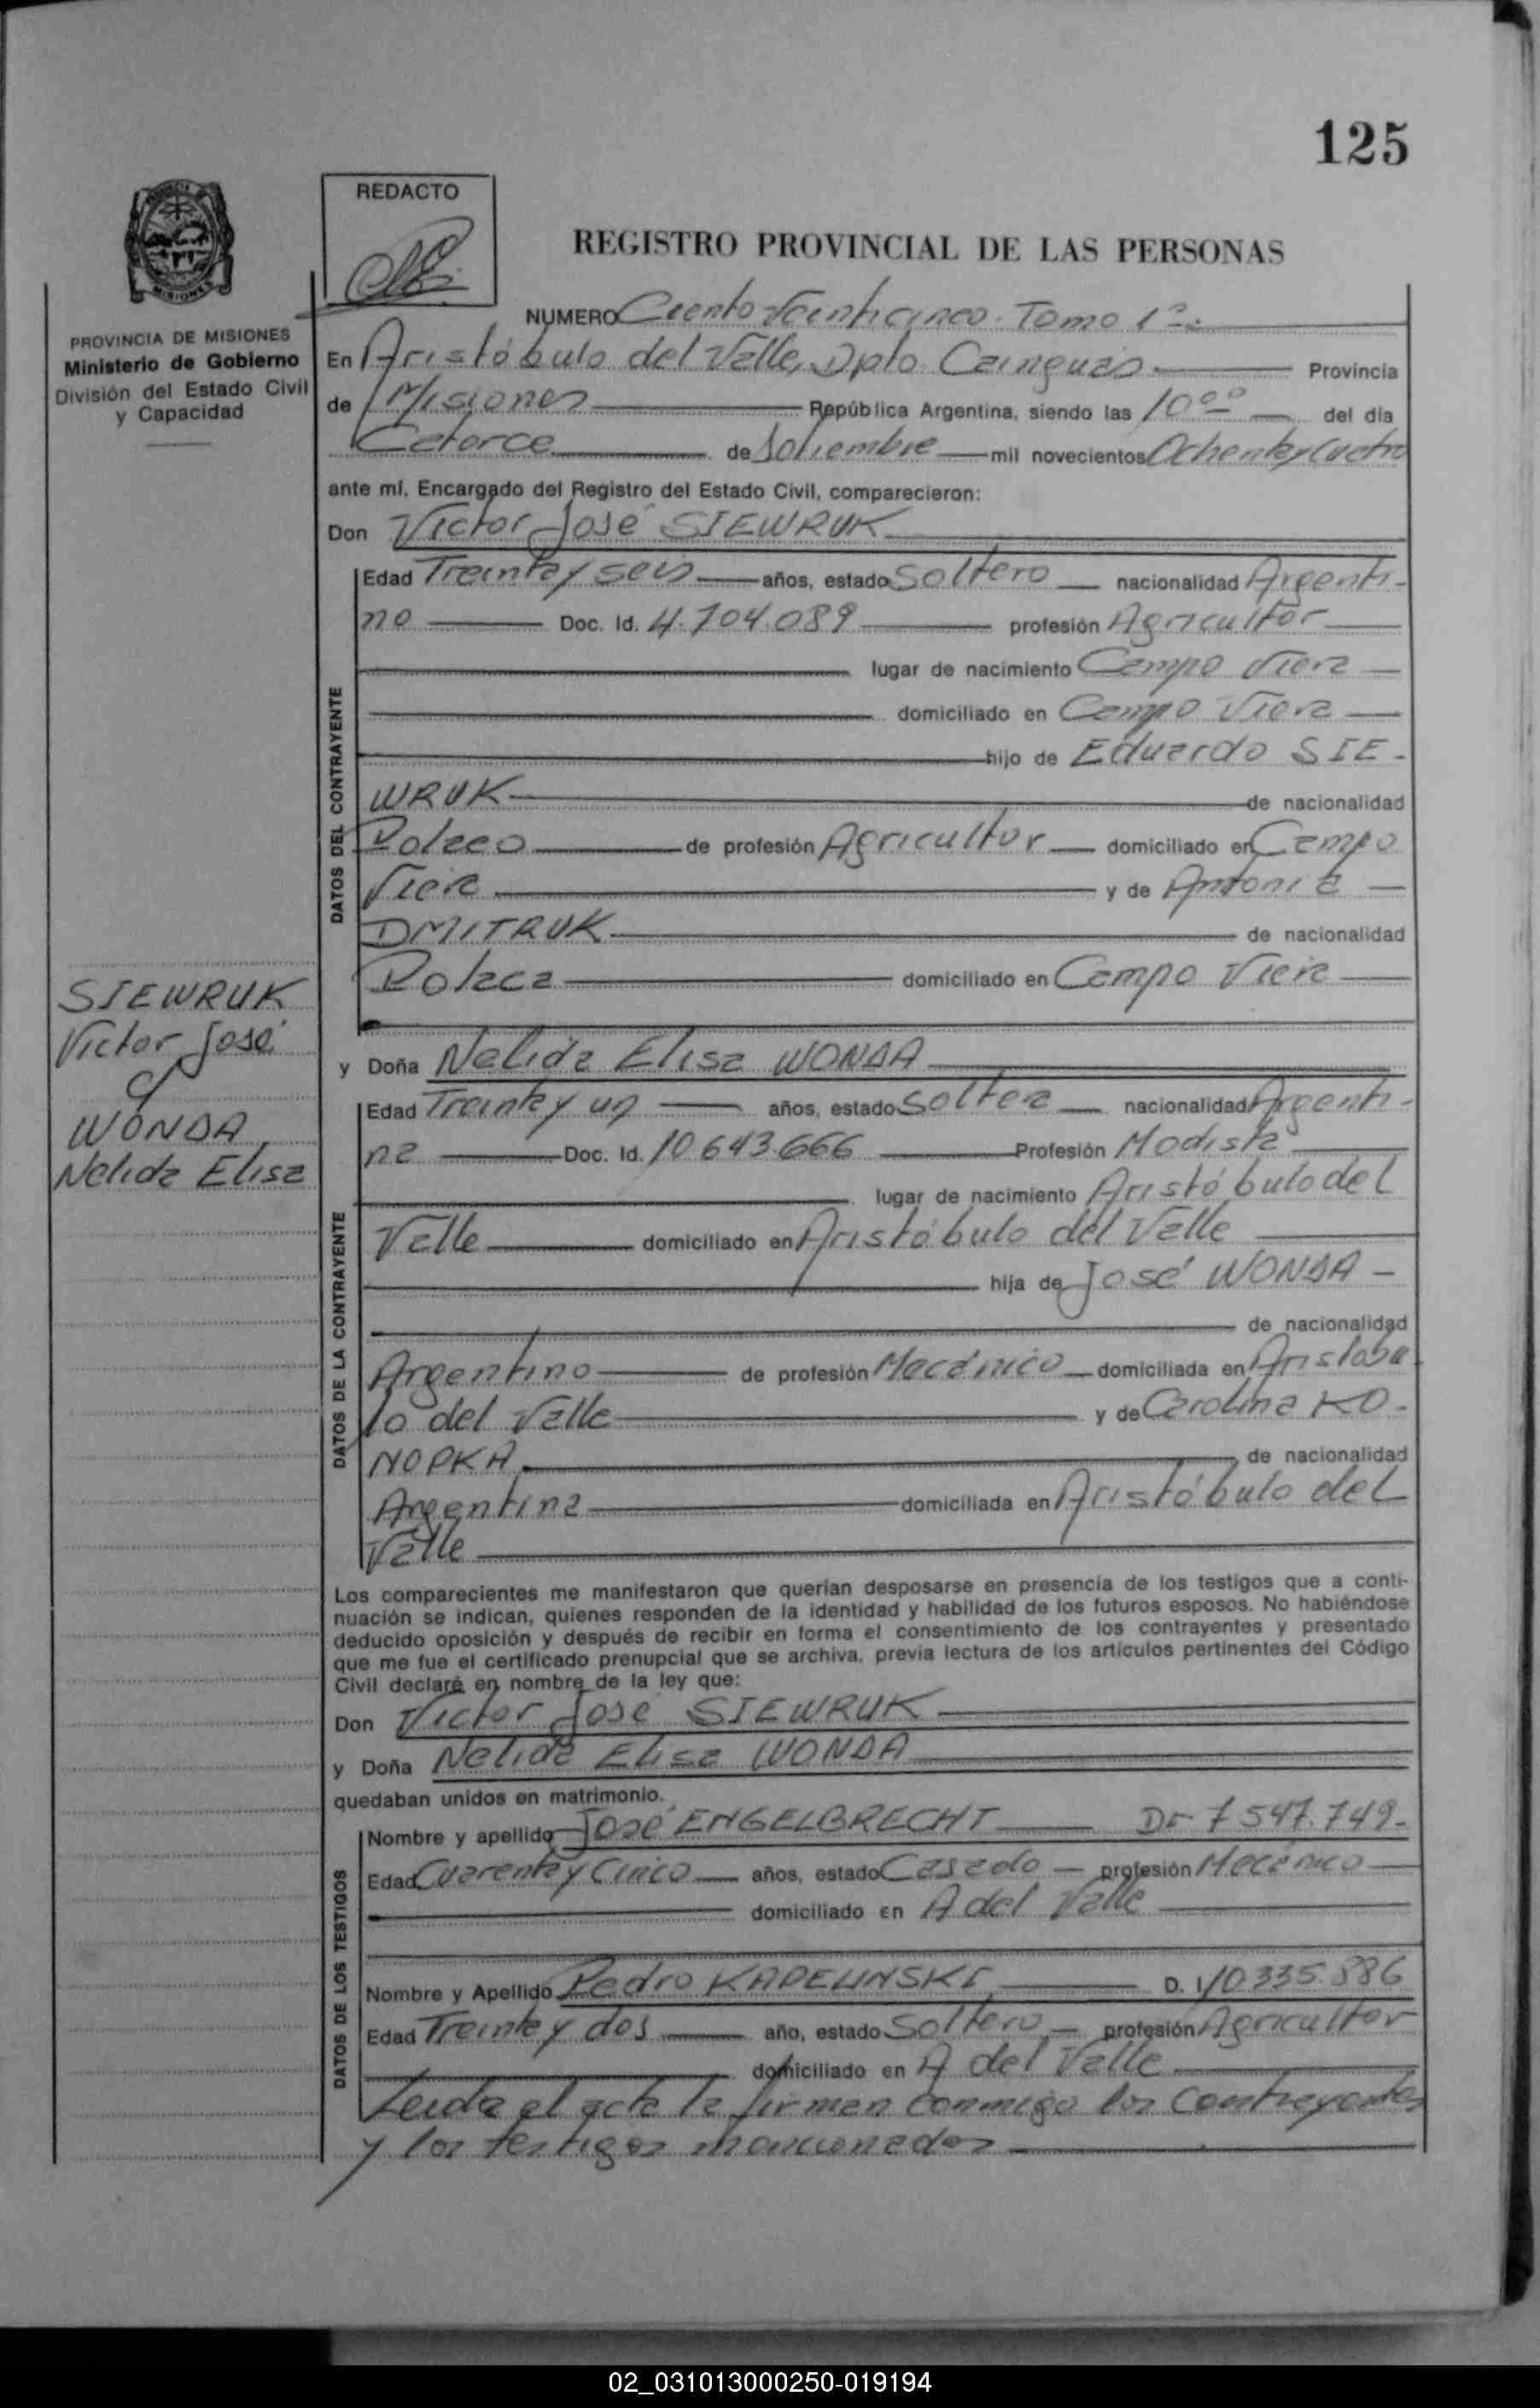 125
REDACTO
REGISTRO PROVINCIAL DE LAS PERSONAS
MISIONES
PROVINCIA DE MISIONES
Ministerio de Gobierno
División del Estado Civil
y Capacidad
NUMERO Ciento Veinticinco. Tomo 1º.
En Aristóbulo del Valle, Dpto. Cainguás Provincia
de Misiones República Argentina, siendo las 10°° del día
Catorce de Noviembre mil novecientos Ochenta y Cuatro
ante mí, Encargado del Registro del Estado Civil, comparecieron:
Don Victor José SIEWRUK
DATOS DEL CONTRAYENTE
Edad Treinta y seis años, estado Soltero nacionalidad Argenti-
no Doc. Id. 4.704.089 profesión Agricultor
lugar de nacimiento Campo Viera
domiciliado en Campo Viera
hijo de Eduardo SIE-
WRUK de nacionalidad
Polaco de profesión Agricultor domiciliado en Campo
Viera y de Antonia
DMITRUK de nacionalidad
Polaca domiciliado en Campo Viera
SIEWRUK
Victor José
c/
WONDA
Nelida Elisa
y Doña Nelida Elisa WONDA
DATOS DE LA CONTRAYENTE
Edad Treinta y un años, estado Soltera nacionalidad Argenti-
na Doc. Id. 10.643.666 Profesión Modista
lugar de nacimiento Aristóbulo del
Valle domiciliado en Aristóbulo del Valle
hija de José WONDA -
de nacionalidad
Argentino de profesión Mecánico domiciliada en Aristobu
lo del Valle y de Carolina KO-
NOPKA de nacionalidad
Argentina domiciliada en Aristóbulo del
Valle
Los comparecientes me manifestaron que querían desposarse en presencia de los testigos que a conti-
nuación se indican, quienes responden de la identidad y habilidad de los futuros esposos. No habiéndose
deducido oposición y después de recibir en forma el consentimiento de los contrayentes y presentado
que me fue el certificado prenupcial que se archiva, previa lectura de los artículos pertinentes del Código
Civil declaré en nombre de la ley que:
Don Victor José SIEWRUK
y Doña Nelida Elisa WONDA
quedaban unidos en matrimonio.
DATOS DE LOS TESTIGOS
Nombre y apellido José ENGELBRECHT DI- 7.547.749-
Edad Cuarenta y Cinco años, estado Casado profesión Mecánico
domiciliado en A del Valle
Nombre y Apellido Pedro KAPELINSKI D. I. 10.335.886
Edad Treinta y dos año, estado Soltero profesión Agricultor
domiciliado en A del Valle
Leida el acta la firman conmigo los Contrayentes
y los testigos mencionados
02_031013000250-019194